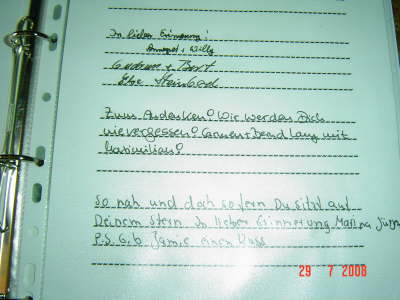 In lieber Erinnerung!
Annegret + Willy
Gudrun + Bert
Elke Steinbock
Zum Andenken! Wir werden Dich
nie vergessen! Carmen + Bernd Lang mit
Maximilian!
So nah und doch so fern Du sitzt auf
Deinem Stern In lieber Erinnerung Martina Jürgen
P.S. Gib Jamie einen Kuss
29 7 2008